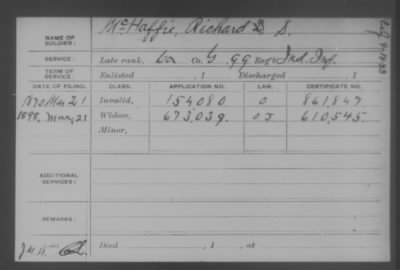 McHaffie, Richard D S.
NAME OF SOLDIER:
SERVICE: Late rank, Cor Co. G, 99 Reg't Ind. Inf.
TERM OF SERVICE: Enlisted , 1 Discharged , 1
DATE OF FILING. CLASS. APPLICATION NO. LAW. CERTIFICATE NO.
1870 Mar 21 Invalid, 154080 O 861,847
1898, Mar, 21 Widow, 673,039. O J 610,545.
Minor,
ADDITIONAL SERVICES:
REMARKS:
Died , 1 , at